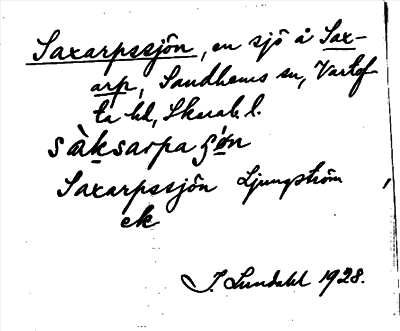 Saxarpssjön, en sjö å Sax-
arp, Sandhems sn, Vartof-
ta hd, Skarab. l.
sàksarpaʃǿn
Saxarpssjön Ljungström,
ek
J. Lundahl 1928.